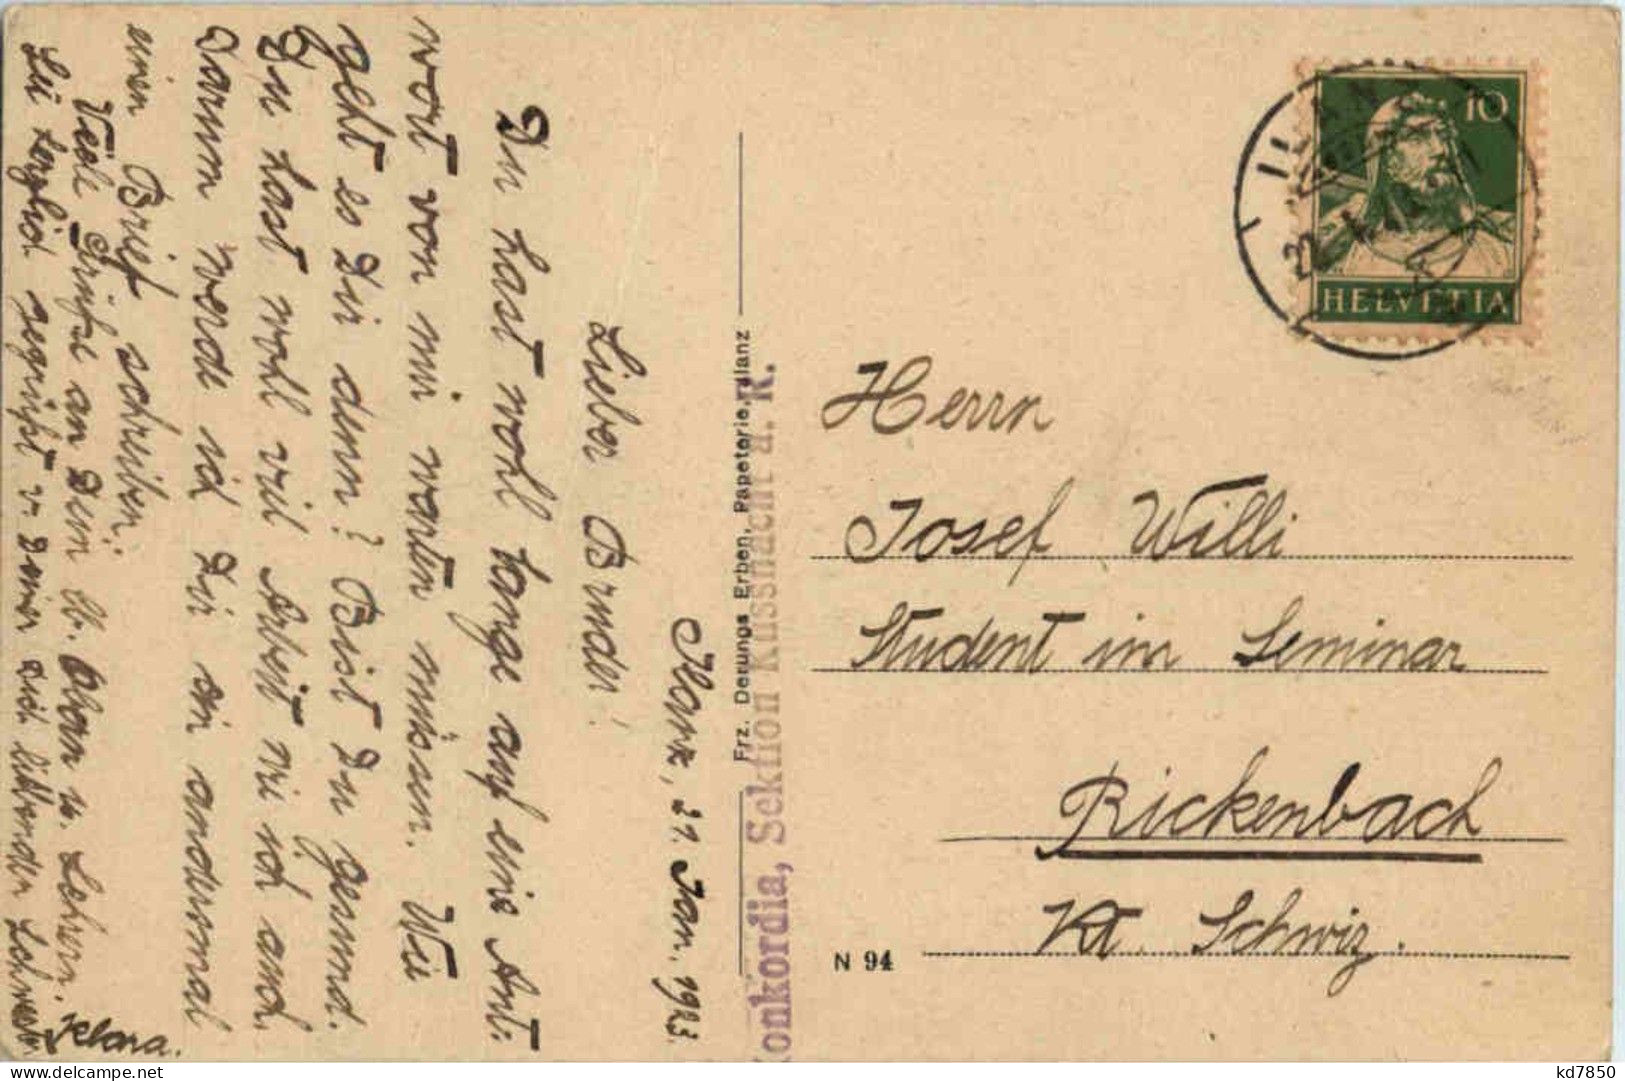 Ilanz, 21. Jan. 1923.
Lieber Bruder!
Du hast wohl lange auf eine Ant-
wort von mir warten müssen. Wie
geht es Dir denn? Bist Du gesund.
Du hast wohl viel Arbeit wie ich auch.
Darum werde ich Dir ein andersmal
einen Brief schreiben.
Viele Grüsse an Dein lb. Obern u. Lehrern.
Sei herzlich gegrüsst v. Deiner dich liebenden Schwester
Klara.
Frz. Derungs Erben, Papeterie, Ilanz
Konkordia, Sektion Küssnacht a. R.
ILANZ
10
HELVETIA
Herrn
Josef Willi
Student im Seminar
Rickenbach
Kt. Schwiz.
N 94
kd7850